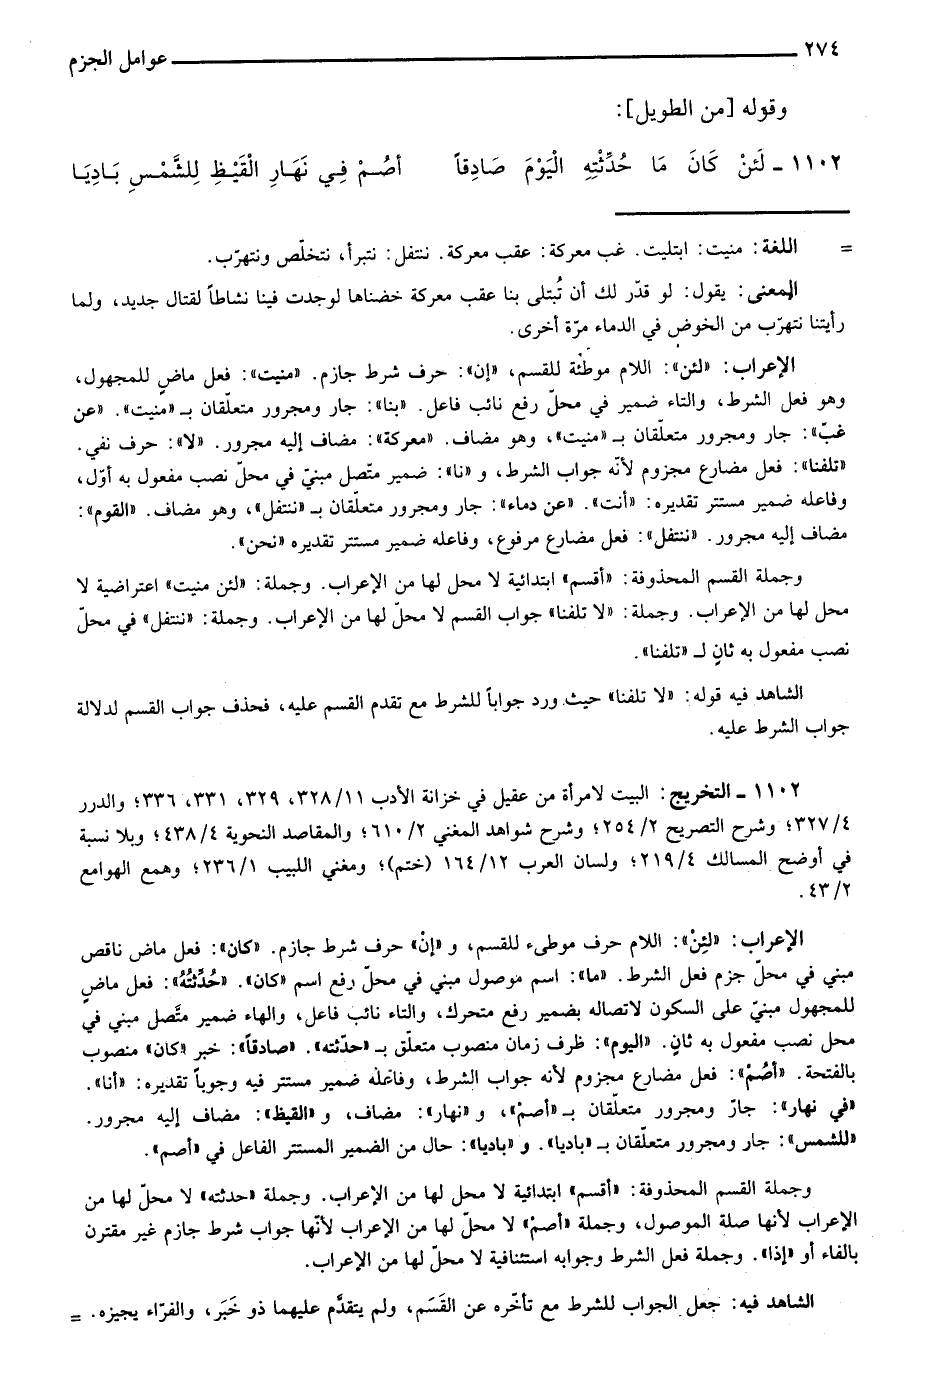 ٢٧٤ عوامل الجزم
وقوله [من الطويل]:
١١٠٢ ـ لَئِنْ كَانَ مَا حُدِّثْتِهِ الْيَوْمَ صَادِقاً أصُمْ فِي نَهَارِ الْقَيْظِ لِلشَّمْسِ بَادِيَا
= اللغة: منيت: ابتليت. غب معركة: عقب معركة. ننتفل: نتبرأ، نتخلّص ونتهرّب.
المعنى: يقول: لو قدّر لك أن تُبتلى بنا عقب معركة خضناها لوجدت فينا نشاطاً لقتال جديد، ولما
رأيتنا نتهرّب من الخوض في الدماء مرّة أخرى.
الإعراب: «لئن»: اللام موطئة للقسم، «إن»: حرف شرط جازم. «منيت»: فعل ماضٍ للمجهول،
وهو فعل الشرط، والتاء ضمير في محلّ رفع نائب فاعل. «بنا»: جار ومجرور متعلّقان بـ«منيت». «عن
غبّ»: جار ومجرور متعلّقان بـ«منيت»، وهو مضاف. «معركة»: مضاف إليه مجرور. «لا»: حرف نفي.
«تلفنا»: فعل مضارع مجزوم لأنّه جواب الشرط، و«نا»: ضمير متّصل مبنيّ في محلّ نصب مفعول به أوّل،
وفاعله ضمير مستتر تقديره: «أنت». «عن دماء»: جار ومجرور متعلّقان بـ«ننتفل»، وهو مضاف. «القوم»:
مضاف إليه مجرور. «ننتفل»: فعل مضارع مرفوع، وفاعله ضمير مستتر تقديره «نحن».
وجملة القسم المحذوفة: «أقسم» ابتدائية لا محل لها من الإعراب. وجملة: «لئن منيت» اعتراضية لا
محل لها من الإعراب. وجملة: «لا تلفنا» جواب القسم لا محلّ لها من الإعراب. وجملة: «ننتفل» في محلّ
نصب مفعول به ثانٍ لـ«تلفنا».
الشاهد فيه قوله: «لا تلفنا» حيث ورد جواباً للشرط مع تقدم القسم عليه، فحذف جواب القسم لدلالة
جواب الشرط عليه.
١١٠٢ ـ التخريج: البيت لامرأة من عقيل في خزانة الأدب ٣٢٨/١١، ٣٢٩، ٣٣١، ٣٣٦؛ والدرر
٣٢٧/٤؛ وشرح التصريح ٢٥٤/٢؛ وشرح شواهد المغني ٦١٠/٢؛ والمقاصد النحوية ٤٣٨/٤؛ وبلا نسبة
في أوضح المسالك ٢١٩/٤؛ ولسان العرب ١٦٤/١٢ (ختم)؛ ومغني اللبيب ٢٣٦/١؛ وهمع الهوامع
٤٣/٢.
الإعراب: «لئِنْ»: اللام حرف موطىء للقسم، و«إنْ» حرف شرط جازم. «كان»: فعل ماض ناقص
مبني في محلّ جزم فعل الشرط. «ما»: اسم موصول مبني في محلّ رفع اسم «كان». «حُدِّثتُهُ»: فعل ماضٍ
للمجهول مبنيّ على السكون لاتصاله بضمير رفع متحرك، والتاء نائب فاعل، والهاء ضمير متَّصل مبني في
محل نصب مفعول به ثانٍ. «اليوم»: ظرف زمان منصوب متعلّق بـ«حدّثته». «صادقاً»: خبر «كان» منصوب
بالفتحة. «أصُمْ»: فعل مضارع مجزوم لأنه جواب الشرط، وفاعله ضمير مستتر فيه وجوباً تقديره: «أنا».
«في نهار»: جارّ ومجرور متعلّقان بـ«أصمْ»، و«نهار»: مضاف، و«القيظ»: مضاف إليه مجرور.
«للشمس»: جار ومجرور متعلّقان بـ«باديا». و«باديا»: حال من الضمير المستتر الفاعل في «أصم».
وجملة القسم المحذوفة: «أقسم» ابتدائية لا محل لها من الإعراب. وجملة «حدثته» لا محلّ لها من
الإعراب لأنها صلة الموصول، وجملة «أصمْ» لا محلّ لها من الإعراب لأنّها جواب شرط جازم غير مقترن
بالفاء أو «إذا». وجملة فعل الشرط وجوابه استئنافية لا محلّ لها من الإعراب.
الشاهد فيه: جعل الجواب للشرط مع تأخّره عن القَسَم، ولم يتقدَّم عليهما ذو خَبَر، والفرّاء يجيزه. =